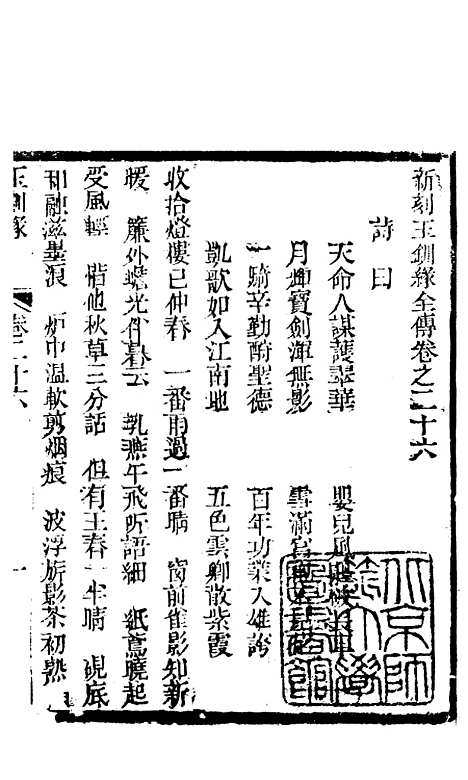 新刻玉釧緣全傳卷之二十六
詩曰
天命人謀護翠華 嬰兒風
月輝寶劍渾無影 雪滿
一騎辛勤酧聖德 百年功業入雄誇
凱歌如入江南地 五色雲卿散紫霞
收拾燈樓已仲春 一番雨過一番晴 窗前雀影知新
暖 簾外蟾光伴暮雲 乳燕午飛听語細 紙鳶曉起
受風輕 惜他秋草三分話 但有王春一半晴 硯底
和融滋墨浪 炉中温軟剪烟痕 波浮旂影茶初熟
玉釧緣 卷二十六 一